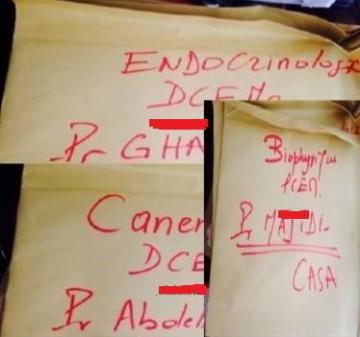 ENDOCrinologie
DCEM
Pr GHA
Caner
DCE
Pr Abdel
Biophysique
PCEM
Pr MAJIDI
CASA